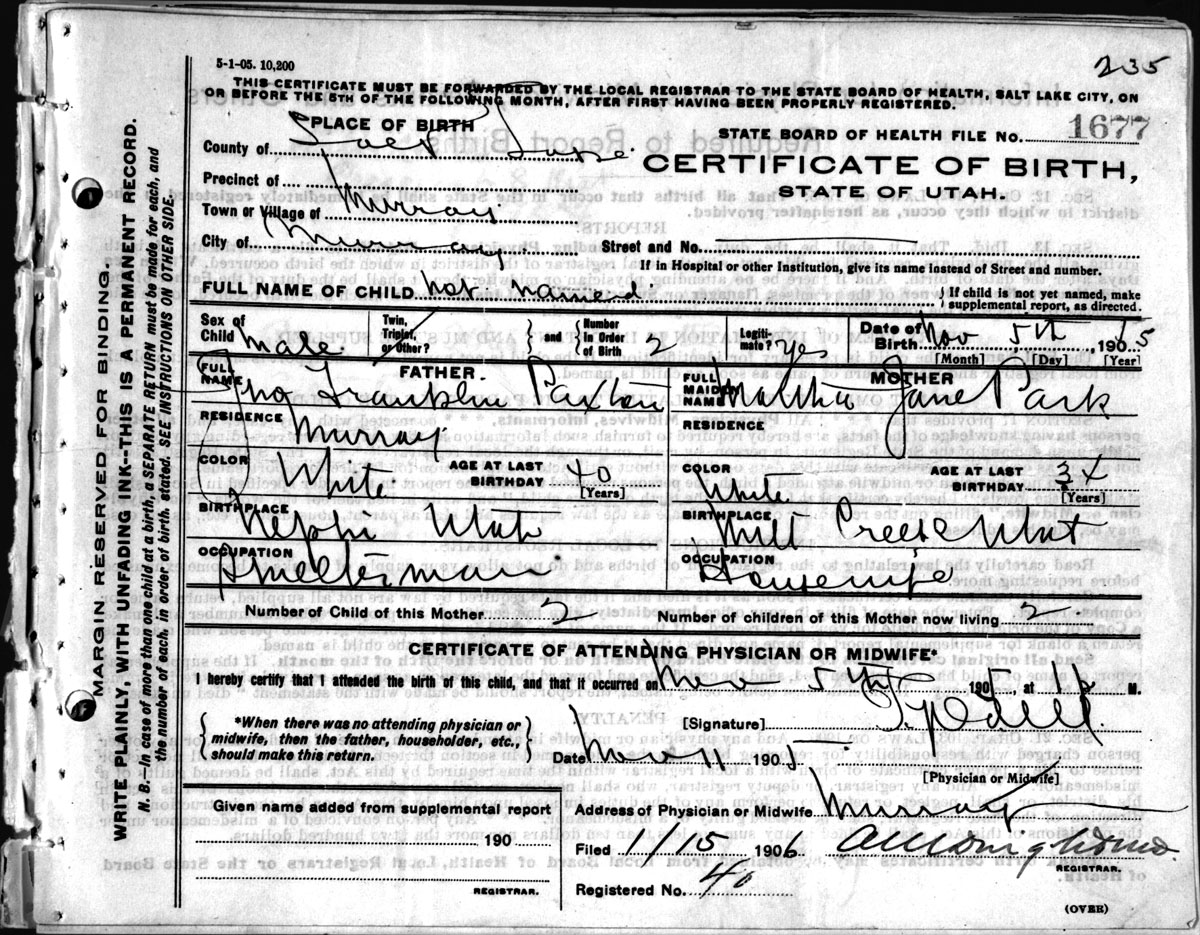 235
5-1-05. 10,200
THIS CERTIFICATE MUST BE FORWARDED BY THE LOCAL REGISTRAR TO THE STATE BOARD OF HEALTH, SALT LAKE CITY, ON
OR BEFORE THE 5TH OF THE FOLLOWING MONTH, AFTER FIRST HAVING BEEN PROPERLY REGISTERED.
PLACE OF BIRTH
STATE BOARD OF HEALTH FILE No. 1677
County of Salt Lake
CERTIFICATE OF BIRTH,
STATE OF UTAH.
Precinct of
Town or Village of Murray
City of Murray Street and No.
If in Hospital or other Institution, give its name instead of Street and number.
FULL NAME OF CHILD not named { If child is not yet named, make
supplemental report, as directed.
Sex of Child Male Twin, Triplet, or Other? and Number in Order of Birth 2 Legitimate? Yes Date of Birth Nov 5th, 1905
[Month] [Day] [Year]
FATHER. MOTHER
FULL NAME Jno Franklin Paxton FULL MAIDEN NAME Martha Jane Park
RESIDENCE Murray RESIDENCE
COLOR White AGE AT LAST BIRTHDAY 40 [Years] COLOR White AGE AT LAST BIRTHDAY [Years]
BIRTHPLACE Nephi Utah BIRTHPLACE Mill Creek Utah
OCCUPATION Smelterman OCCUPATION Housewife
Number of Child of this Mother 2 Number of children of this Mother now living 2
CERTIFICATE OF ATTENDING PHYSICIAN OR MIDWIFE*
I hereby certify that I attended the birth of this child, and that it occurred on Nov 5th 1905, at M.
{ *When there was no attending physician or
midwife, then the father, householder, etc.,
should make this return. }
[Signature]
Date Nov 11 1905
[Physician or Midwife]
Given name added from supplemental report
190
REGISTRAR.
Address of Physician or Midwife Murray
Filed 1/15 1906
REGISTRAR.
Registered No. 40
(OVER)
MARGIN RESERVED FOR BINDING.
WRITE PLAINLY, WITH UNFADING INK--THIS IS A PERMANENT RECORD.
N. B.--In case of more than one child at a birth, a SEPARATE RETURN must be made for each, and
the number of each, in order of birth, stated. SEE INSTRUCTIONS ON OTHER SIDE.